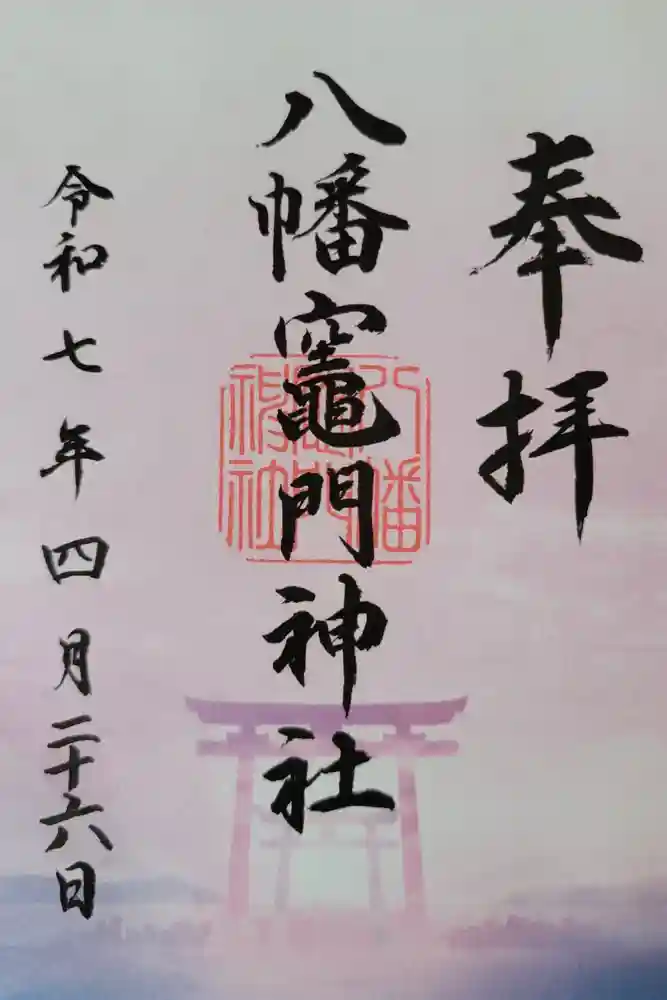 奉拝
八幡竈門神社
八幡竈門神社
令和七年四月二十六日